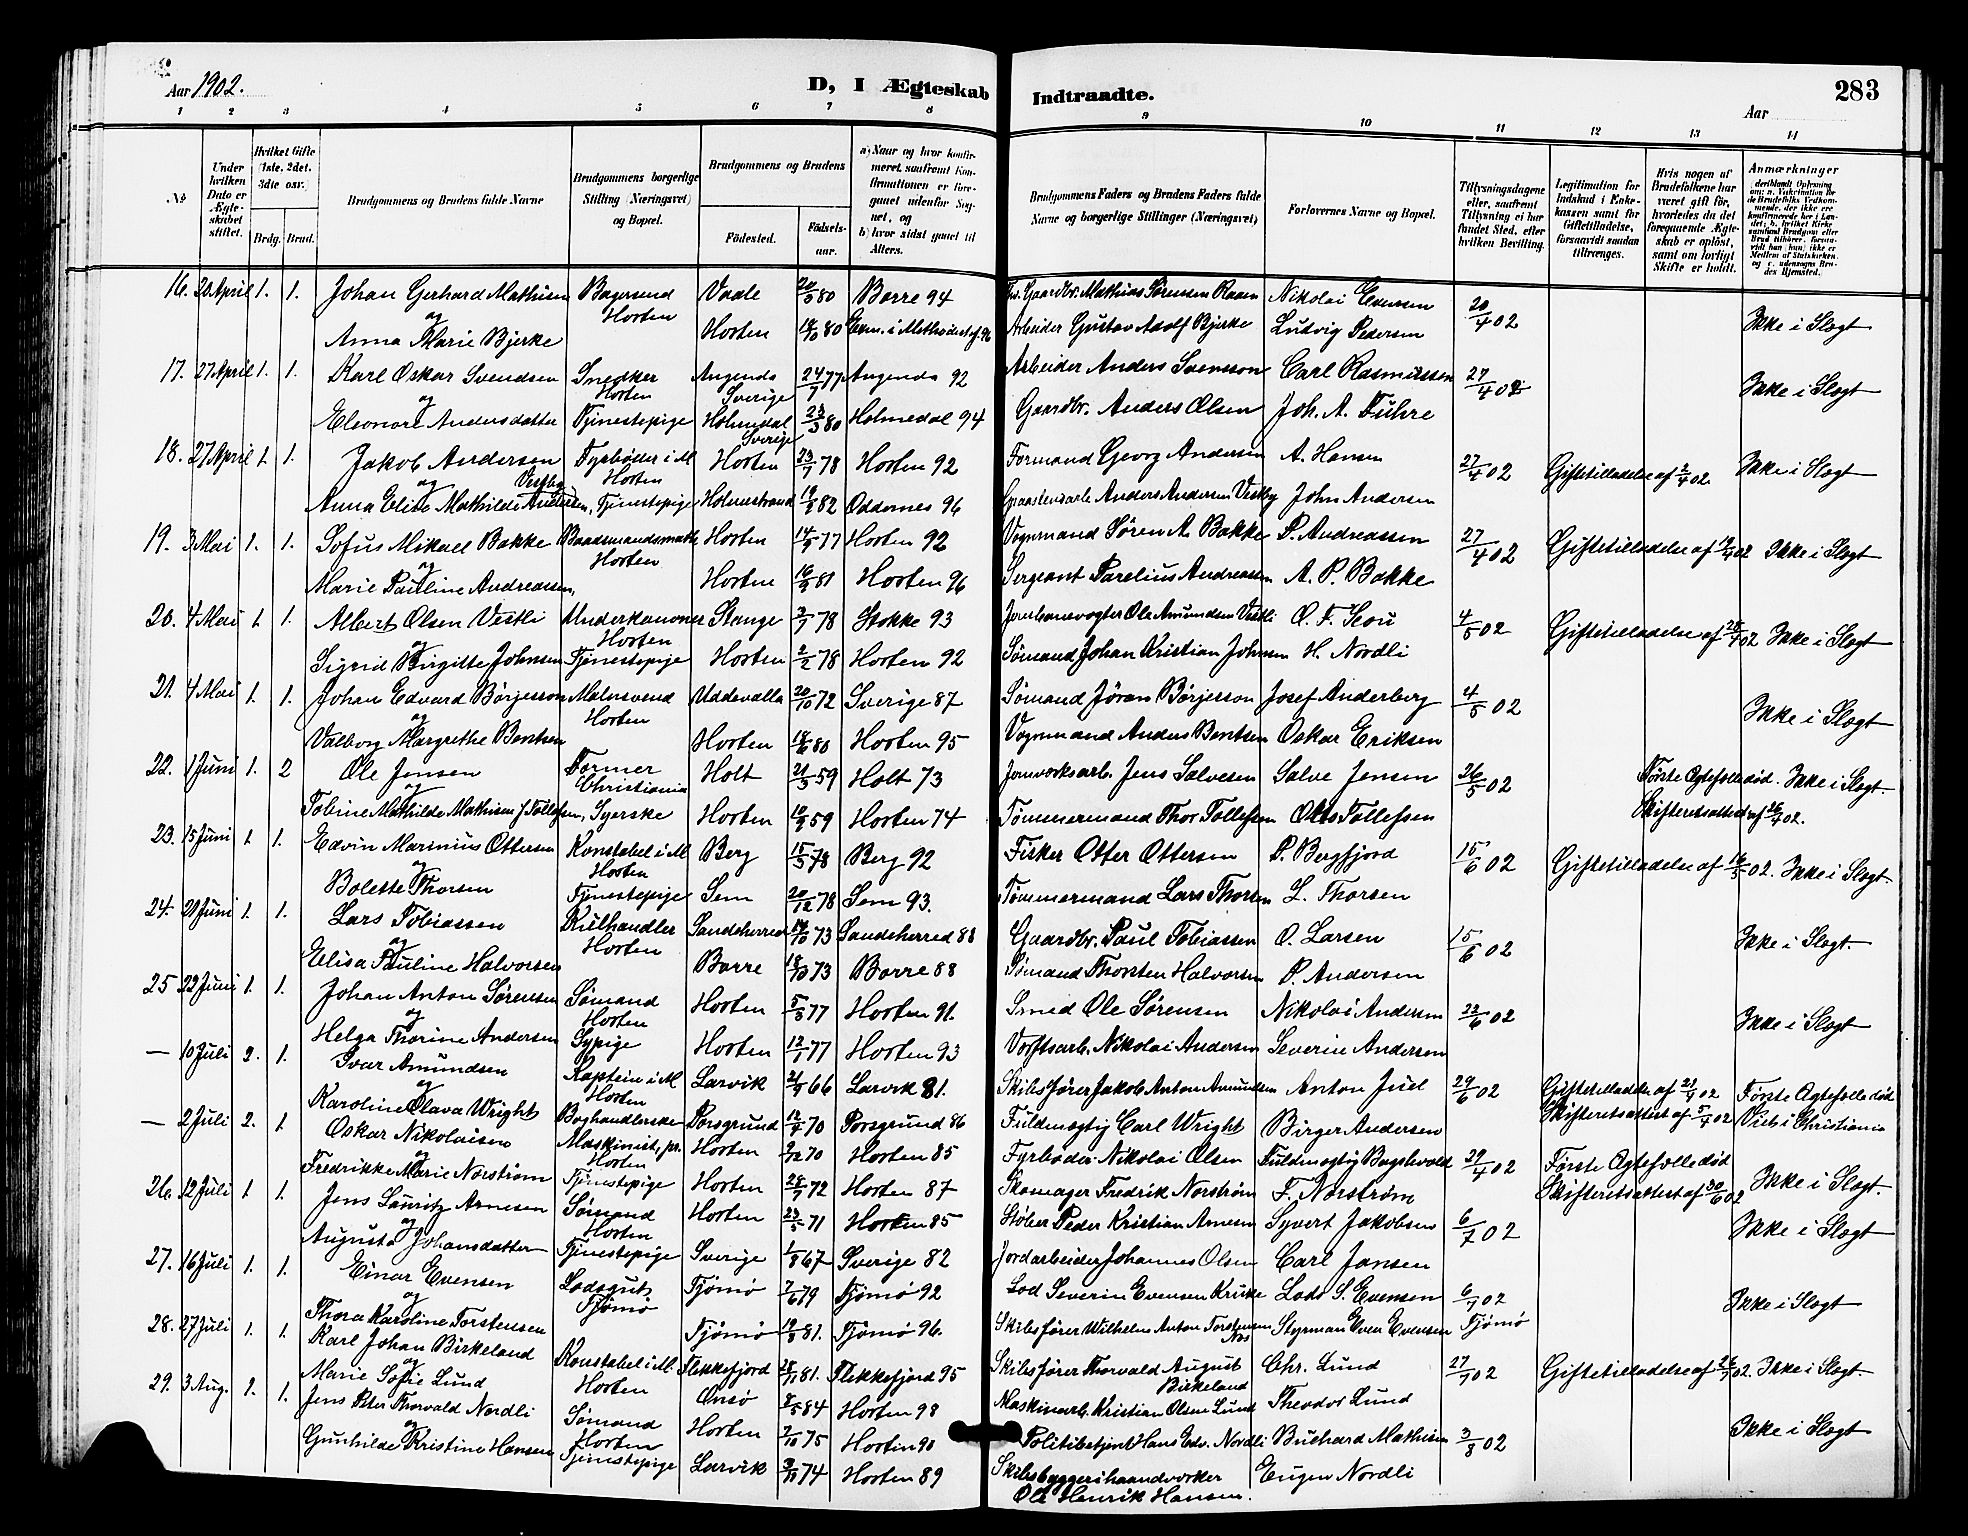 Aar 1902.
D, I Ægteskab Indtraadte.
283
Aar
1 2 3 4 5 6 7 8 9 10 11 12 13 14
No
Under hvilken Dato er Ægteskabet stiftet.
Hvilket Gifte (1ste, 2det, 3die osv.)
Brdg. Brud.
Brudgommens og Brudens fulde Navne
Brudgommens borgerlige Stilling (Næringsvei) og Bopæl.
Brudgommens og Brudens
Fødested.
Fødselsaar.
a) Naar og hvor konfirmeret, saafremt Konfirmationen er foregaaet udenfor Sognet, og
b) hvor sidst gaaet til Alters.
Brudgommens Faders og Brudens Faders fulde Navne og borgerlige Stillinger (Næringsvei)
Forlovernes Navne og Bopæl.
Tillysningsdagene eller, saafremt Tillysning ei har fundet Sted, efter hvilken Bevilling.
Legitimation for Indskud i Enkekassen samt for Giftetilladelse, forsaavidt saadan tiltrænges.
Hvis nogen af Brudefolkene har været gift før, hvorledes da det foregaaende Ægteskab er opløst, samt om lovligt Skifte er holdt.
Anmærkninger
16. 20 April 1. 1. Johan Gerhard Mathisen Bagersvend Vaale 20/5 80 Borre 94 Gaardbr. Mathias Sørensen Raaen Nikolai Evensen 20/4 02
og Horten
Anna Marie Bjerke Horten 18/10 80 Arbeider Gustav Adolf Bjerke Ludvig Pedersen Ikke i Slægt
17. 27 April 1. 1. Karl Oskar Svendsen Snedker Angenda 24/7 77 Angenda 92 Arbeider Anders Svensson Carl Rasmussen 27/4 02 Ikke i Slægt
og Horten Sverige
Eleonore Andersdatter Tjenestepige Holmedal 23/3 80 Holmedal 94 Gaardbr. Anders Olsen Joh. A. Fuhre
Sverige
18. 27 April 1. 1. Jakob Andersen Fyrbøder i M Horten 23/7 78 Horten 92 Formand Georg Andersen A. Hansen 27/4 02 Giftetilladelse af 2/4 02. Ikke i Slægt
og Vestby Horten
Anna Elise Mathilde Andersen, Tjenestepige Holmestrand 82 Oddernes 96 Graastensarb. Anders Andersen Vestby John Andersen
19. 3 Mai 1. 1. Sofus Mikael Bakke Baadsmandsmath Horten 14/9 77 Horten 92 Vognmand Søren A. Bakke P. Andreassen 27/4 02 Giftetilladelse af 19/4 02 Ikke i Slægt
og Horten
Marie Pauline Andreassen, Horten 16/9 81 Horten 96 Sergeant Parelius Andreassen A. P. Bakke
20. 4 Mai 1. 1. Albert Olsen Vestli Underkanoner Stange 3/7 78 Stokke 93 Jernbanevogter Ole Amundsen Vestli O. F. Scou 4/5 02 Giftetilladelse af 02 Ikke i Slægt
og Horten
Sigrid Birgitte Johnsen Tjenestepige Horten 2/2 78 Horten 92 Sømand Johan Kristian Johnsen H. Nordli
21. 4 Mai 1. 1. Johan Edvard Börjesson Malersvend Uddevalla 20/10 72 Sverige 87 Sømand Jöran Börjesson Josef Anderberg 4/5 02
og Horten
Valborg Margrethe Bentsen Horten 18/6 80 Horten 95 Vognmand Anders Bentsen Oskar Eriksen Ikke i Slægt
22. 1 Juni 1. 2 Ole Jensen Former Holt 21/3 59 Holt 73 Jernverksarb. Jens Salvesen Salve Jensen 26/5 02 Første Ægtefælle død. Ikke i Slægt.
og Christiania
Tobine Mathilde Mathisen f. Tollefsen, Syerske Horten 10/9 59 Horten 74 Tømmermand Thor Tollefsen Tollefsen Skifteretsattest af 02.
23. 15 Juni 1. 1. Edvin Marinius Ottersen Konstabel i M Berg 15/5 78 Berg 92 Fisker Otter Ottersen P. Bergfjord 15/6 02 Giftetilladelse af 02. Ikke i Slægt.
og Horten
Bolette Thorsen Tjenestepige Sem 20/12 78 Sem 93. Tømmermand Lars Thorsen L. Thorsen
24. 21 Juni 1. 1. Lars Tobiassen Kulhandler Sandeherred 73 Sandeherred 88 Gaardbr. Paul Tobiassen O. Larsen 15/6 02 Ikke i Slægt.
og Horten
Elisa Pauline Halvorsen Borre 73 Borre 88 Sømand Thorsten Halvorsen P. Andersen
25 22 Juni 1. 1. Johan Anton Sørensen Sømand Horten 5/3 77 Horten 91. Smed Ole Sørensen Nikolai Andersen 22/6 02
og Horten
Helga Thorine Andersen Sypige Horten 12/1 77 Horten 93 Værftsarb. Nikolai Andersen Severin Andersen Ikke i Slægt
— 10 Juli 2. 1. Ivar Amundsen Kaptein i M Larvik 66 Larvik 81. Skibsfører Jakob Anton Amundsen Anton Juel 29/6 02 Giftetilladelse af 02 Første Ægtefælle død
og Horten Skifteretsattest af 5/7 02 Viet i Christiania
Karoline Olava Wright Boghandlerske Porsgrund 70 Porsgrund 86 Fuldmægtig Carl Wright Birger Andersen
— 2 Juli 2. 1. Oskar Nikolaisen Maskinist, pr. Horten 70 Horten 85 Fyrbøder Nikolai Olsen Fuldmægtig 29/4 02 Første Ægtefælle død
og Horten
Fredrikke Marie Norstrøm Tjenestepige Horten 28/7 72 Horten 87 Skomager Fredrik Norstrøm F. Norstrøm Skifteretsattest af 30/6 02 Ikke i Slægt.
26. 12 Juli 1. 1. Jens Lauritz Arnesen Sømand Horten 23/5 71 Horten 85 Støber Peder Kristian Arnesen Syvert Jakobsen 6/7 02 Ikke i Slægt
og Horten
Augusta Johansdatter Tjenestepige Sverige 1/8 67 Sverige 82 Jordarbeider Johannes Olsen Carl Jansen
27. 16 Juli 1. 1. Einar Evensen Lodsgut Tjømø 7/6 79 Tjømø 92 Lod Severin Evensen Krukke Lods S. Evensen 6/7 02
og Tjømø
Thora Karoline Torstensen Tjømø 81. Tjømø 96. Skibsfører Wilhelm Anton Torstensen Styrman Even Evensen Tjømø Ikke i Slægt
28. 27 Juli 1. 1. Karl Johan Birkeland Konstabel i M. Flekkefjord 81. Flekkefjord 95 Skibsfører Thorvald August Birkeland Chr. Lund 27/7 02 Giftetilladelse af 02. Ikke i Slægt.
og Horten
Marie Sofie Lund Onsø 8/5 84 Horten 98 Maskinarb. Kristian Olsen Lund Theodor Lund
29. 3 Aug. 1. 1. Jens Peter Thorvald Nordli Sømand Horten 7/10 75 Horten 90 Politibetjent Hans Edv. Nordli Buchard Mathisen 3/8 02 Ikke i Slægt
og Horten
Gunhilde Kristine Hansen Tjenestepige Larvik 74 Horten 89 Skibsbyggerihaandværker Eugen Nordli
Ole Henrik Hansen.